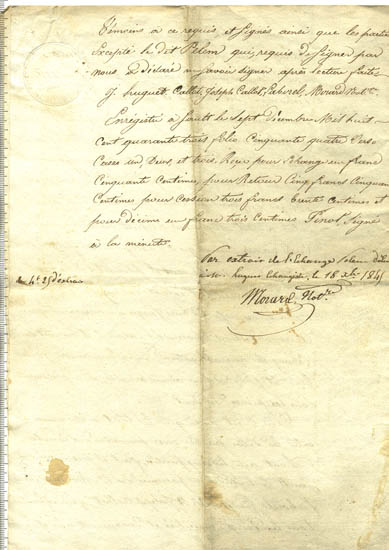 Témoins à ce requis, et signés ainsi que les parties
Excepté le dit Pelem qui, requis de signer par
nous a déclaré ne savoir signer après lecture faite
J. huguet Caillet, Joseph Caillet, Laborel, Morard Not.re
Enregistré à Sault le sept Décembre Mil huit-
cent quarante trois folio Cinquante quatre Verso
Cases un Deux et trois, Reçu pour Echange un franc
Cinquante Centimes, pour Retour Cinq francs Cinquante
Centimes, pour cession trois francs trente Centimes et
pour décime un franc trois Centimes Signé
à la minute.
Par extrait de l'Echange
le 18 Xbre 184
Morard Not.re